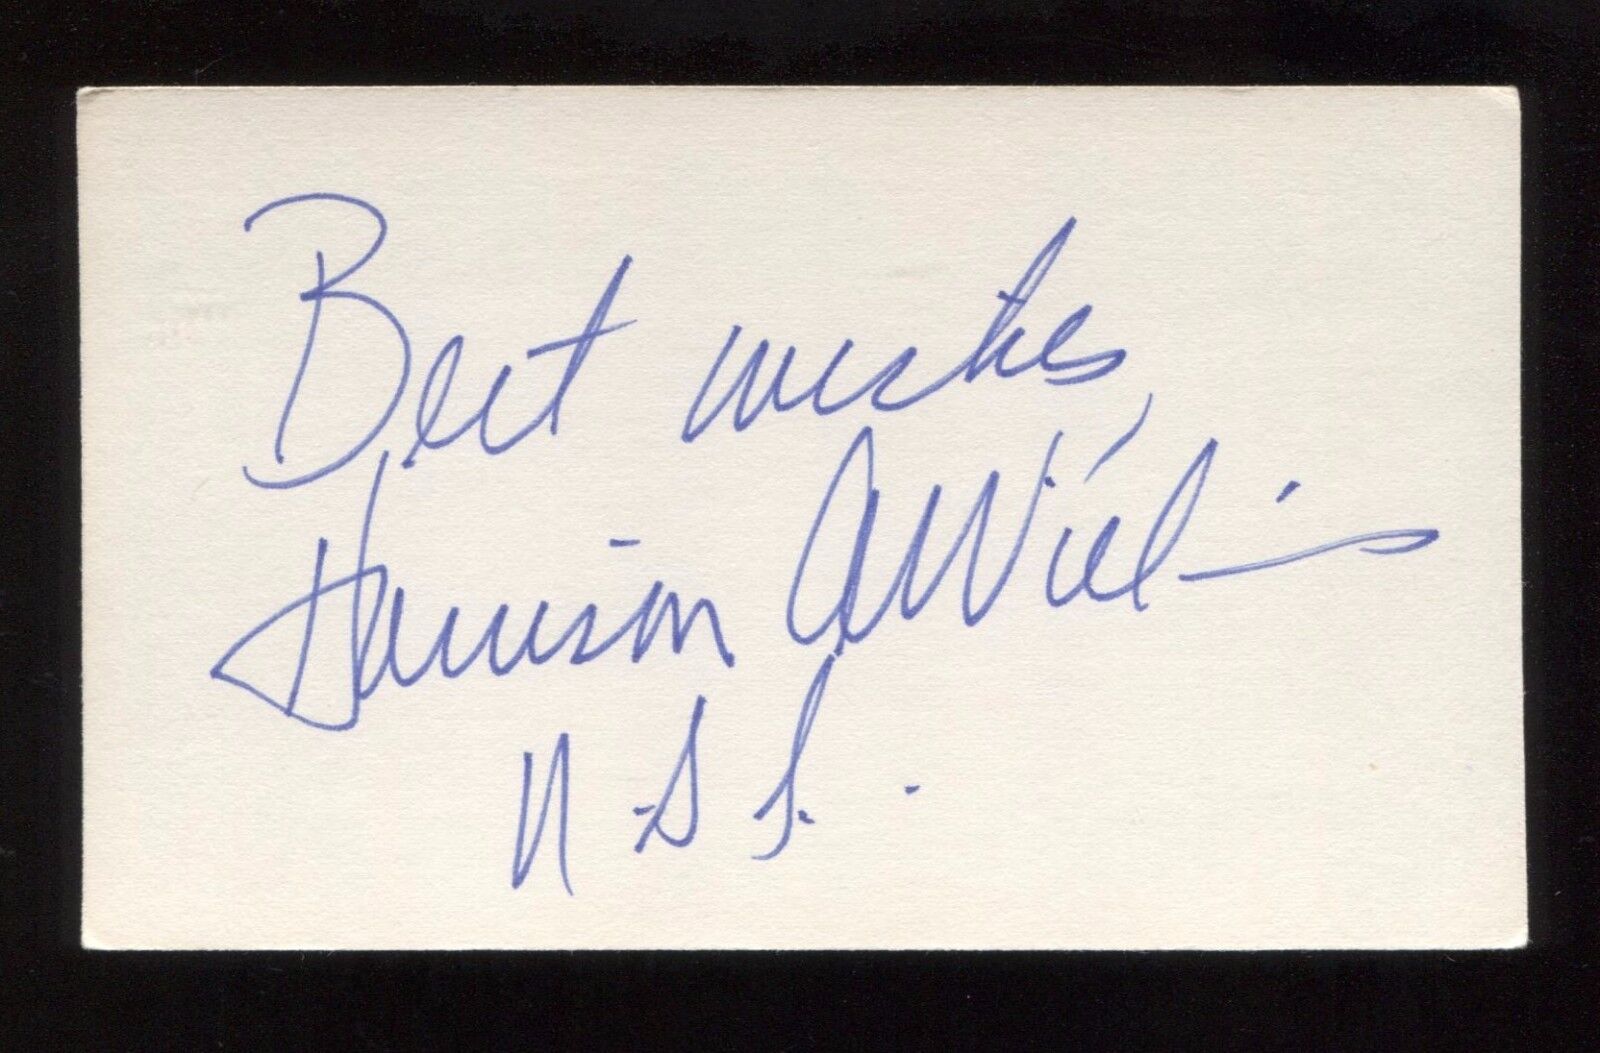 Best wishes,
Harrison A Williams
U.S.S.